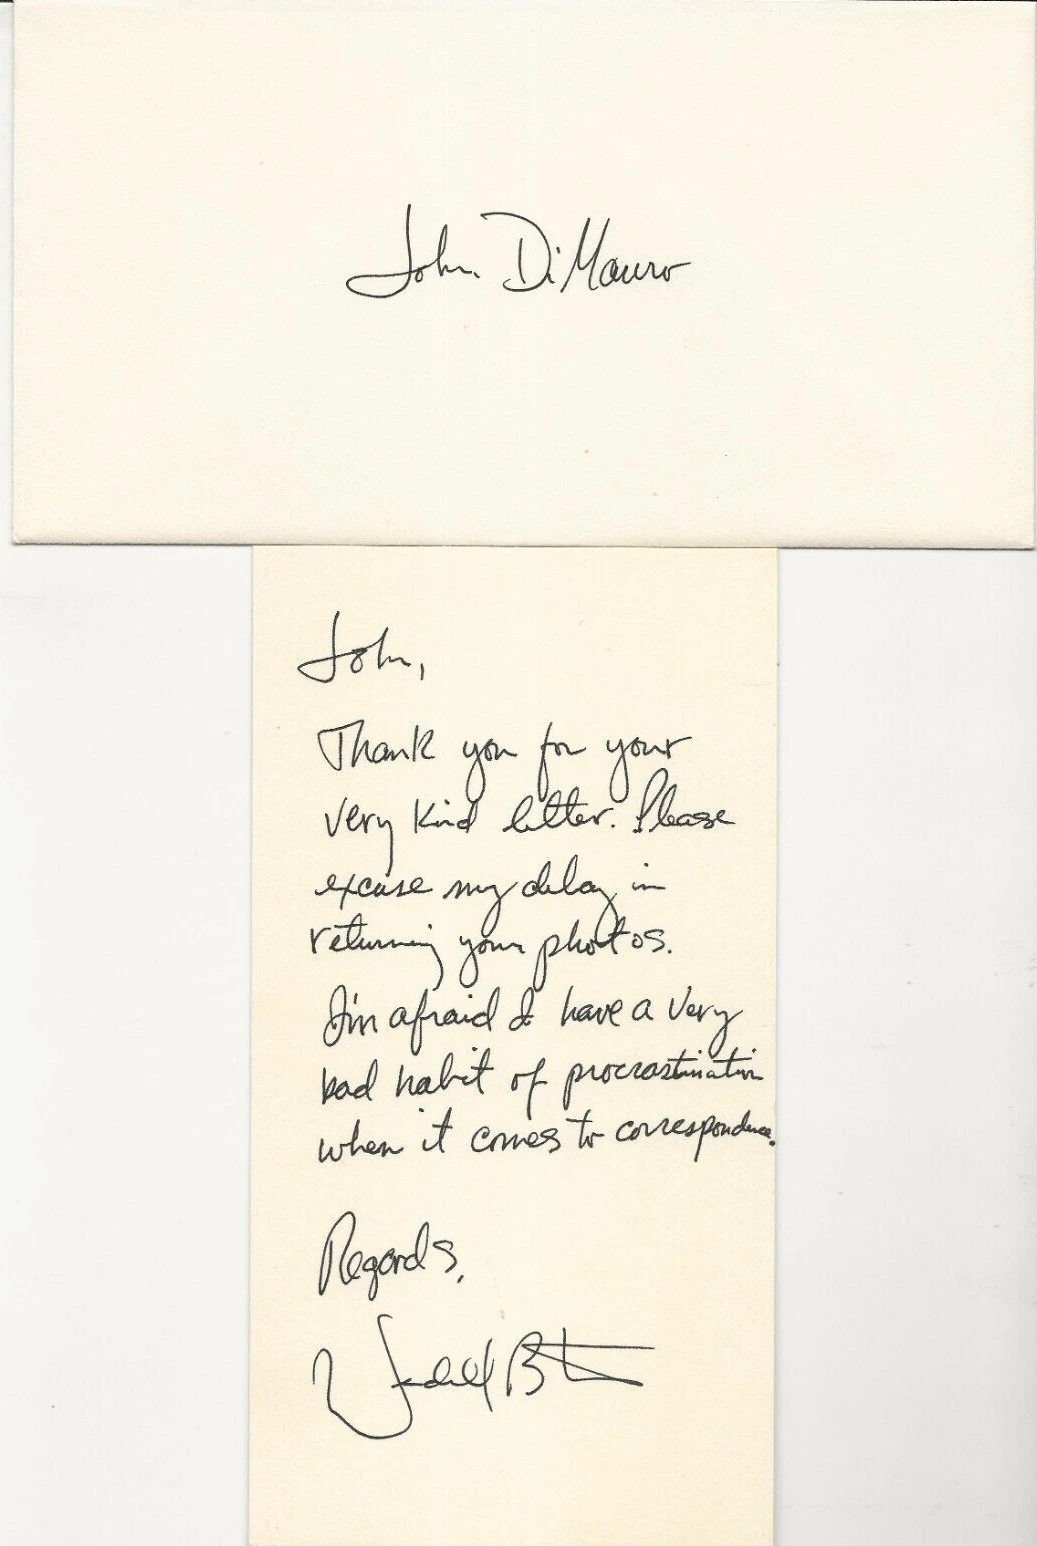 John DiMauro
John,
Thank you for your
very kind letter. Please
excuse my delay in
returning your photos.
I'm afraid I have a very
bad habit of procrastination
when it comes to correspondence.
Regards,